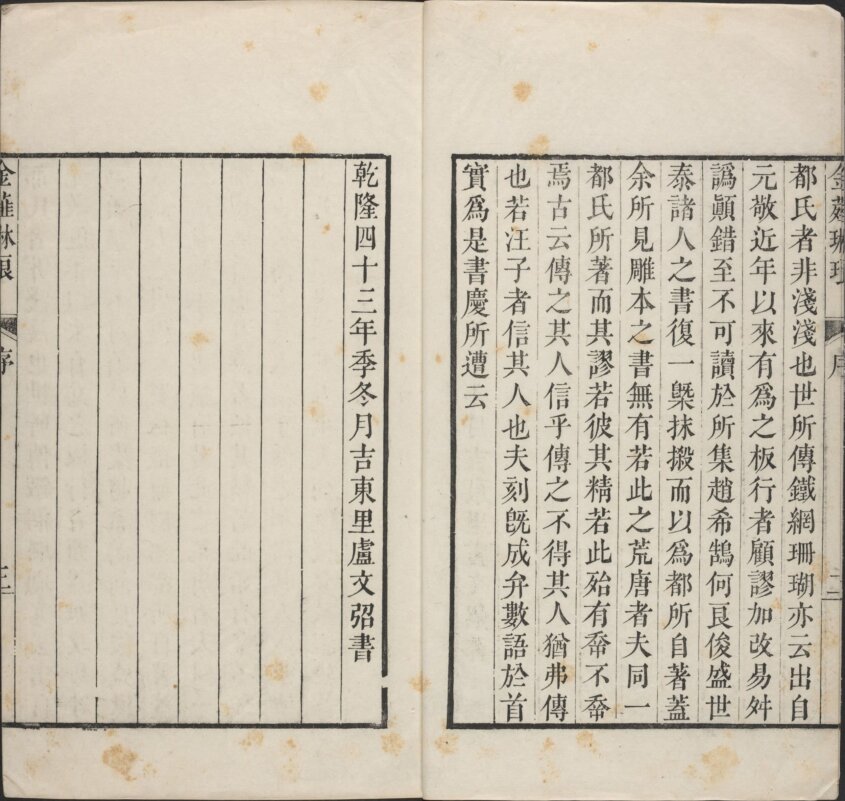 金薤琳琅
序
二
都氏者非淺淺也世所傳鐵網珊瑚亦云出自
元敬近年以來有爲之板行者顧謬加改易舛
譌顚錯至不可讀於所集趙希鵠何良俊盛世
泰諸人之書復一槩抹摋而以爲都所自著蓋
余所見雕本之書無有若此之荒唐者夫同一
都氏所著而其謬若彼其精若此殆有奇不奇
焉古云傳之其人信乎傳之不得其人猶弗傳
也若汪子者信其人也夫刻旣成弁數語於首
實爲是書慶所遭云
乾隆四十三年季冬月吉東里盧文弨書
金薤琳琅
序
三